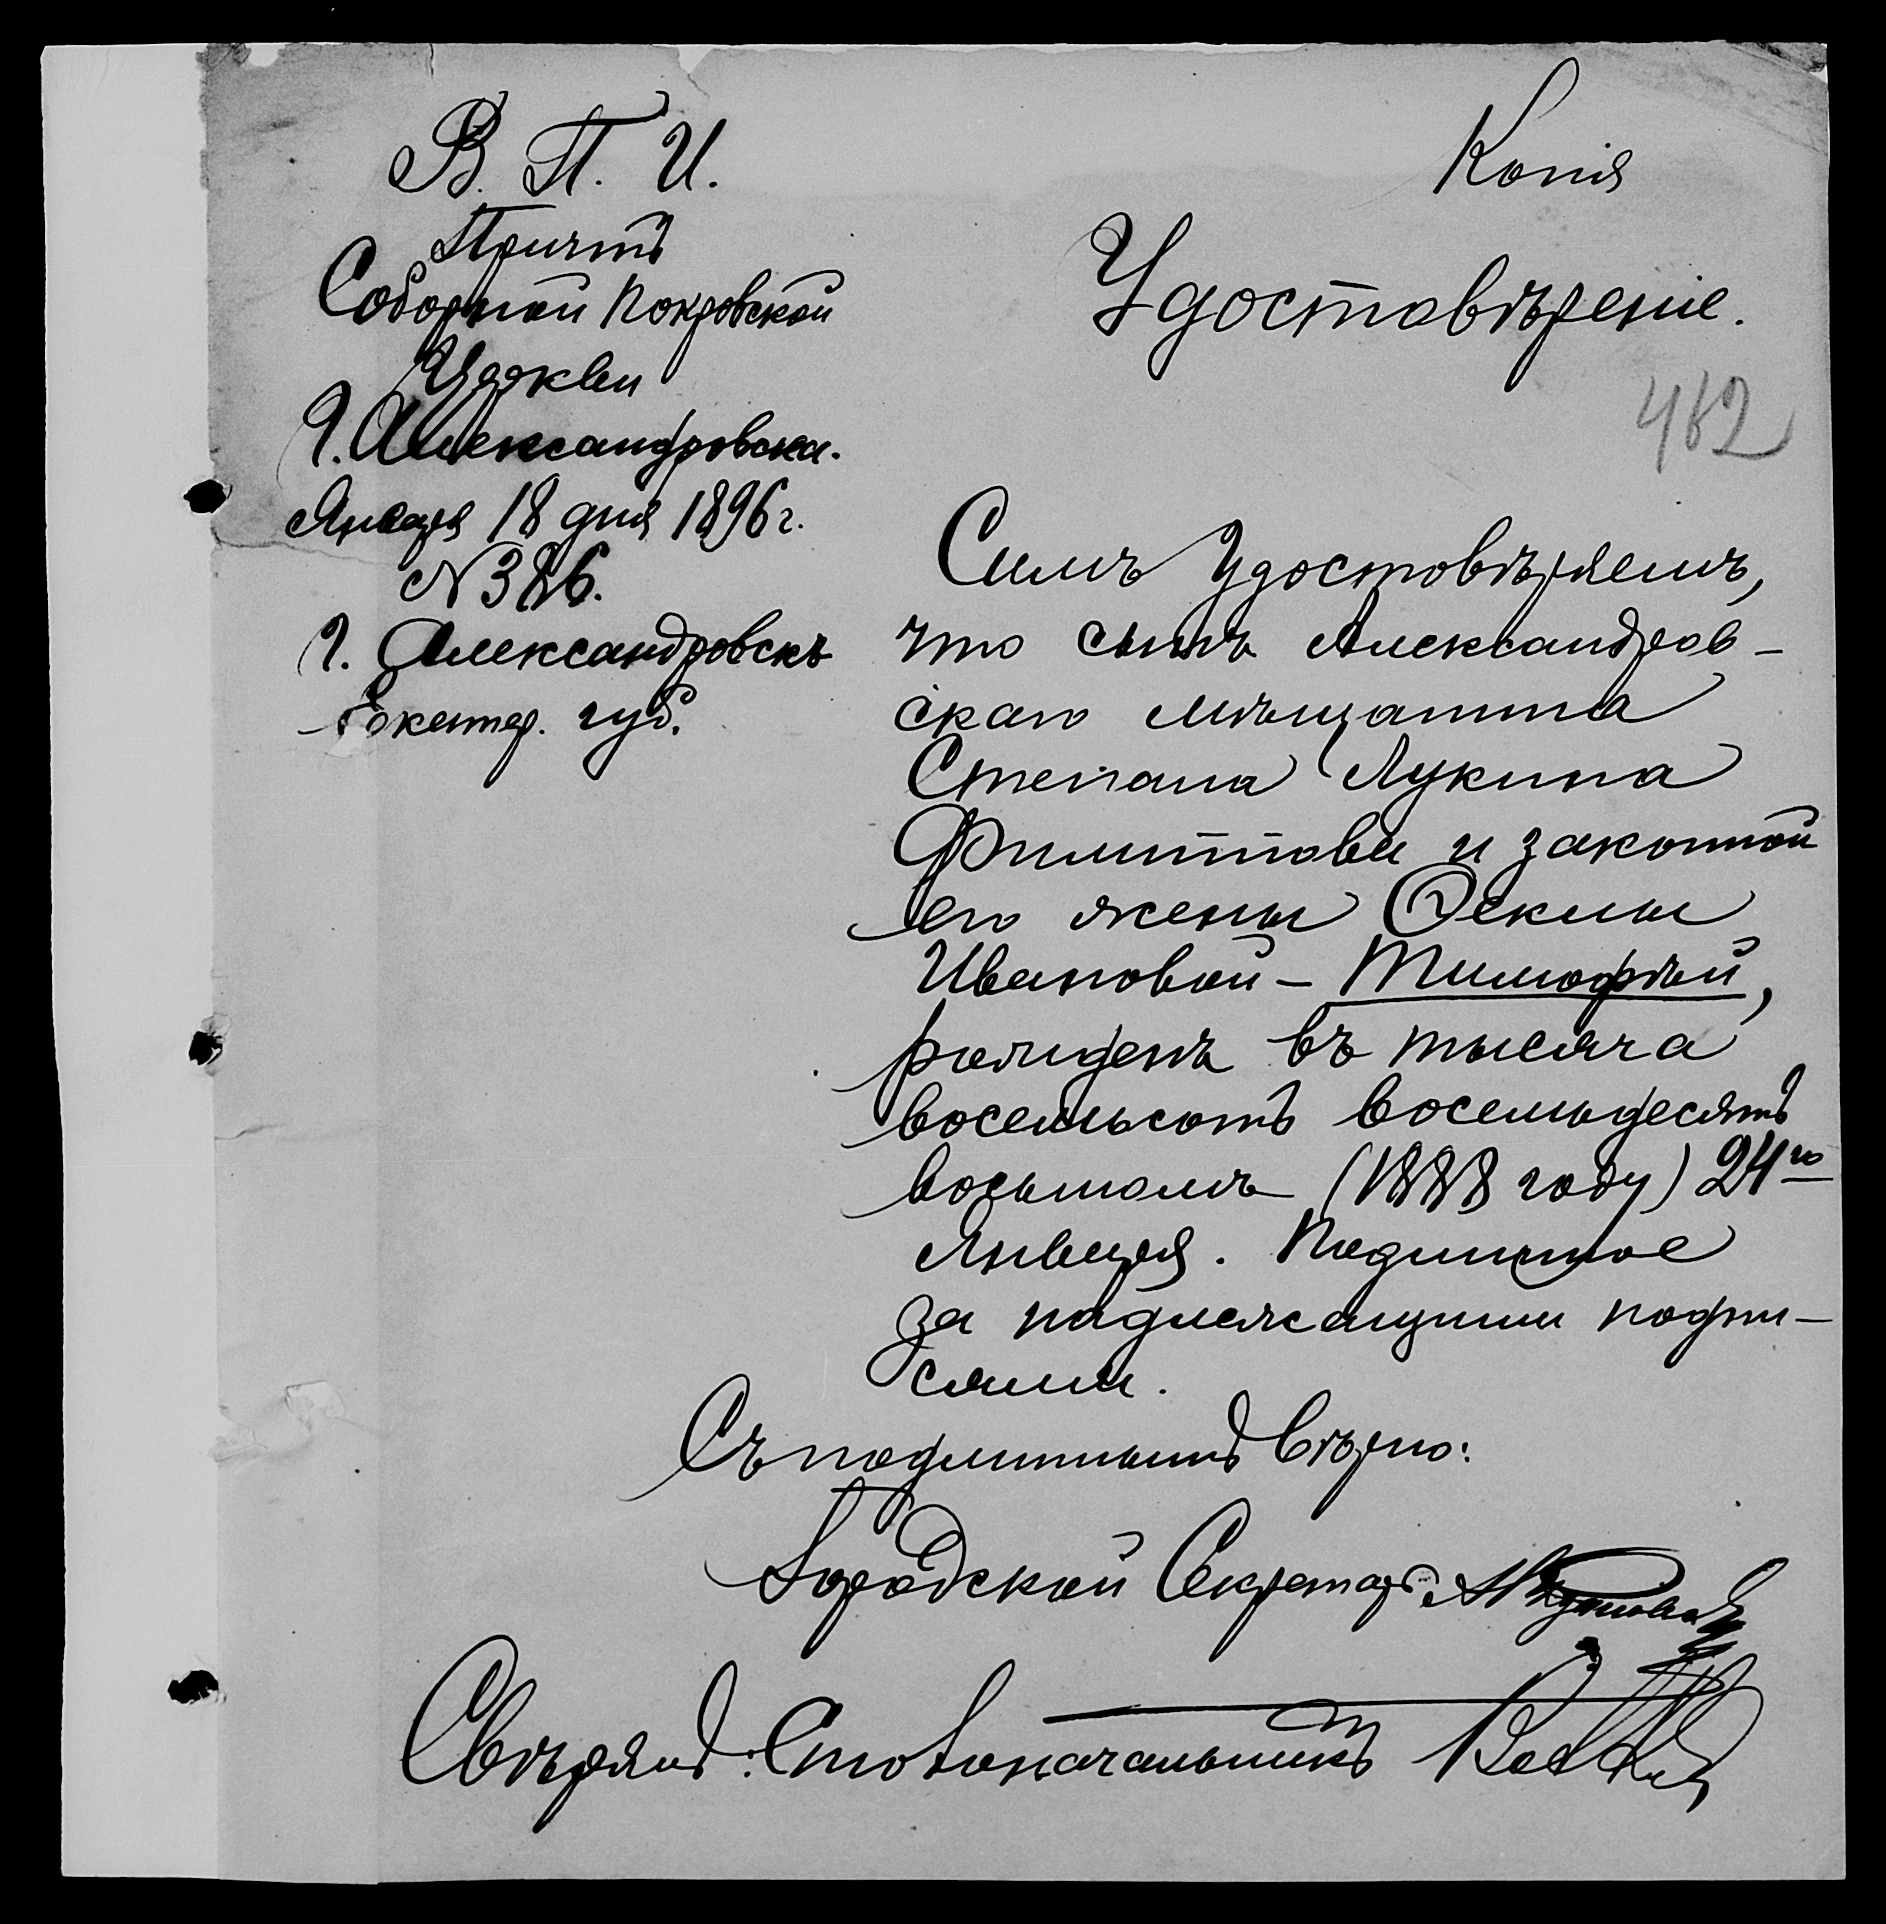 В. П. И.
Причтъ
Соборной Покровской
Церкви
г. Александровска.
Января 18 дня 1896 г.
№ 386.
г. Александровскъ
Екатер. губ.
Копія
Удостовѣреніе.
462
Симъ Удостовѣряемъ,
что сынъ Александров-
скаго мѣщанина
Степана Лукина
Филиппова и законной
его жены Ѳеклы
Ивановой - Тимофѣй,
рожденъ въ тысяча
восемьсотъ восемьдесятъ
восьмомъ (1888 году) 24го
Января. Подлинное
за надлежащими подпи-
сями.
Съ подлиннымъ вѣрно:
Городской Секретарь
Свѣрялъ: Столоначальникъ